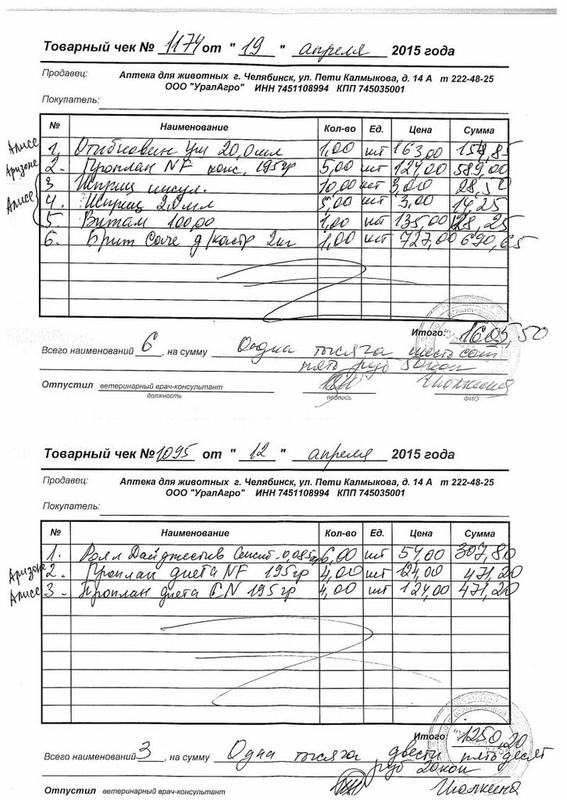 Товарный чек № 1174 от " 19 " апреля 2015 года
Продавец: Аптека для животных г. Челябинск, ул. Пети Калмыкова, д. 14 А т 222-48-25
ООО "УралАгро" ИНН 7451108994 КПП 745035001
Покупатель:
№ Наименование Кол-во Ед. Цена Сумма
Алисе 1. 20,0мл 1,00 шт 163,00 154,85
Аризоне 2. Проплан NF конс, 195гр 5,00 шт 124,00 589,00
3 Шприц инсул. 10,00 шт 3,00 28,50
Алисе 4. Шприц 2,0мл 5,00 шт 3,00 14,25
5 Витам 100,0 1,00 шт 135,00 128,25
6. Брит д/кастр 2кг 1,00 шт 727,00 690,65
Итого: 1605,50
Всего наименований 6, на сумму Одна тысяча шестьсот
пять руб 50коп
Отпустил ветеринарный врач-консультант
должность подпись ФИО
Товарный чек № 1095 от " 12 " апреля 2015 года
Продавец: Аптека для животных г. Челябинск, ул. Пети Калмыкова, д. 14 А т 222-48-25
ООО "УралАгро" ИНН 7451108994 КПП 745035001
Покупатель:
№ Наименование Кол-во Ед. Цена Сумма
1. Роял Дайджестив Сенсит. 0,085 6,00 шт 54,00 307,80
Аризоне 2. Проплан диета NF 195гр 4,00 шт 124,00 471,20
Алисе 3. Проплан диета CN 195гр 4,00 шт 124,00 471,20
Итого 1250,20
Всего наименований 3, на сумму Одна тысяча двести пятьдесят
руб 20коп
Отпустил ветеринарный врач-консультант